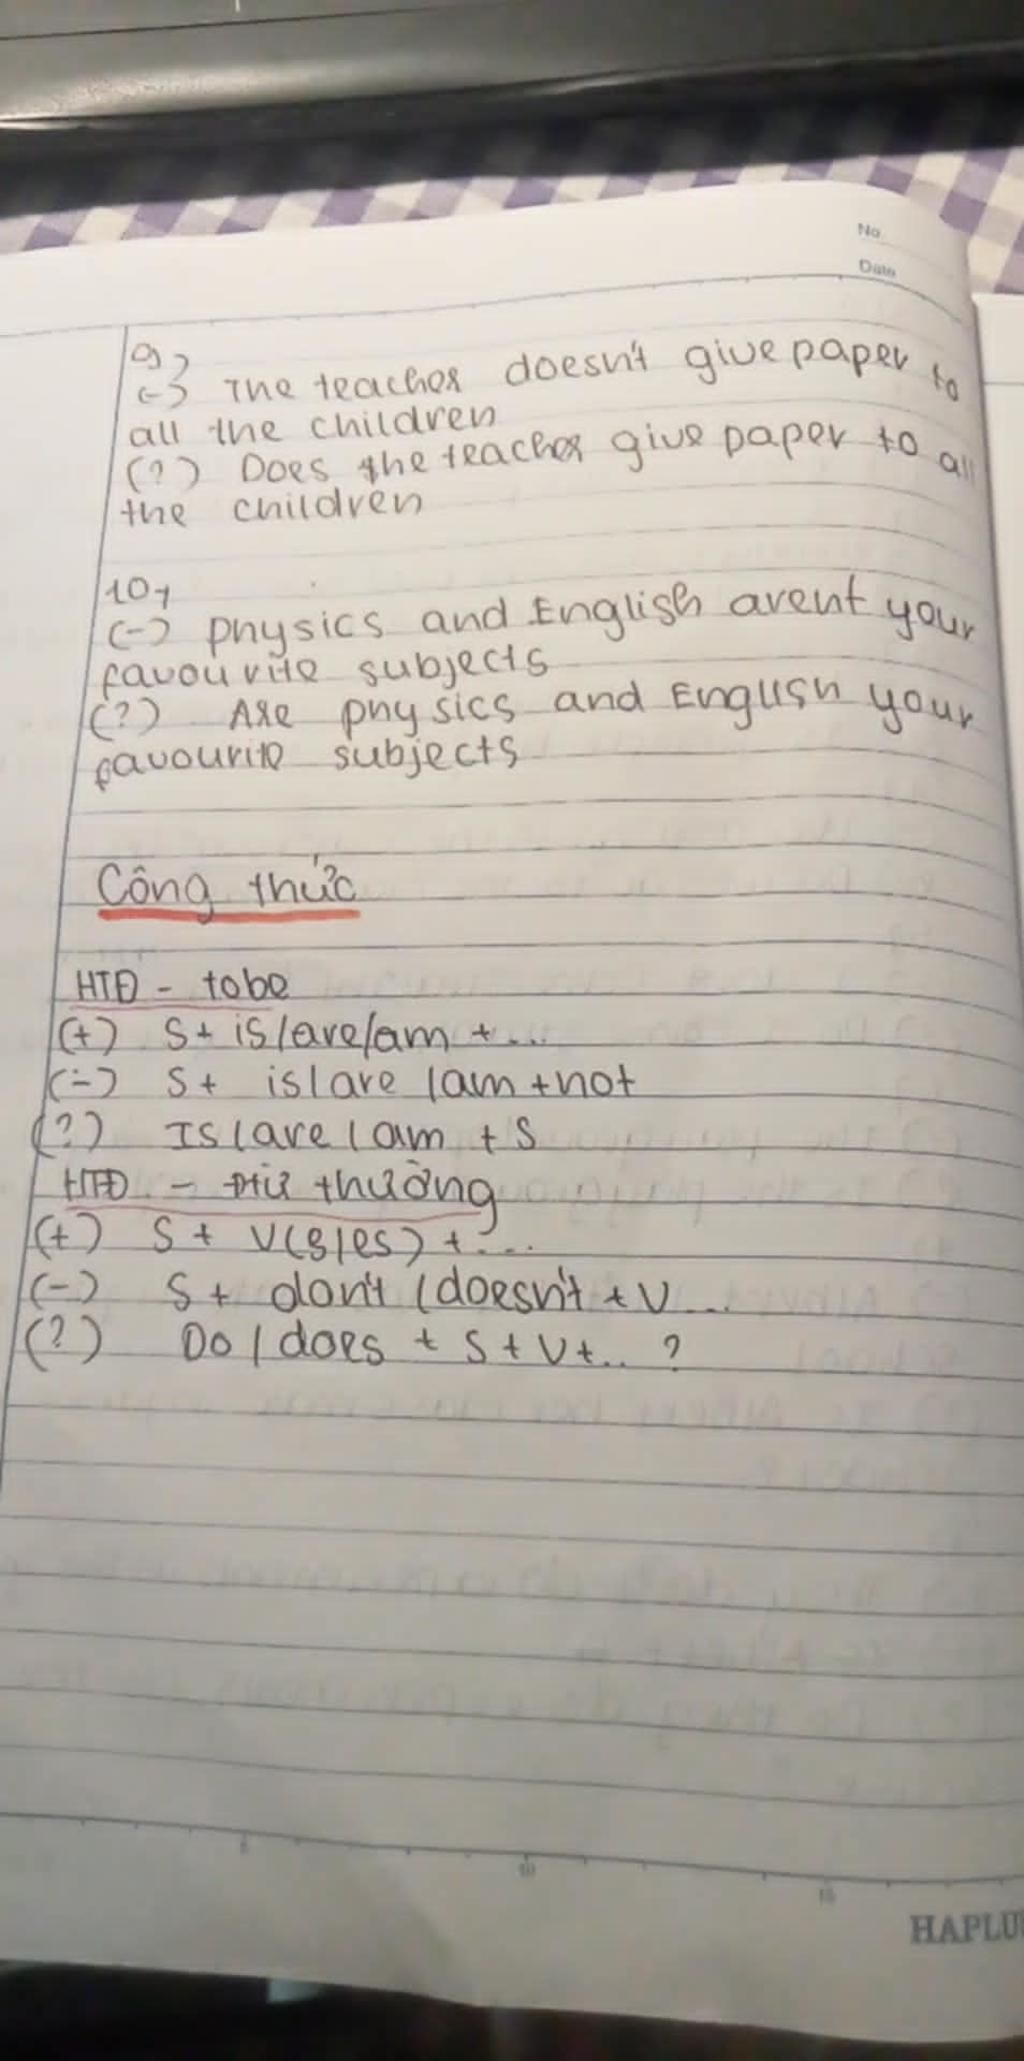 No.
Date
9,
(-) The teacher doesn't give paper to
all the children
(?) Does the teacher give paper to all
the children
10,
(-) physics and English arent your
favourite subjects
(?) Are physics and English your
favourite subjects
Công thức
HTĐ - tobe
(+) S+ is/are/am + ...
(-) S+ is/are/am + not
(?) Is/are/am + S
HTĐ - thường
(+) S + V(s/es) + ...
(-) S + don't/doesn't + V...
(?) Do/does + S + V+.. ?
10
15